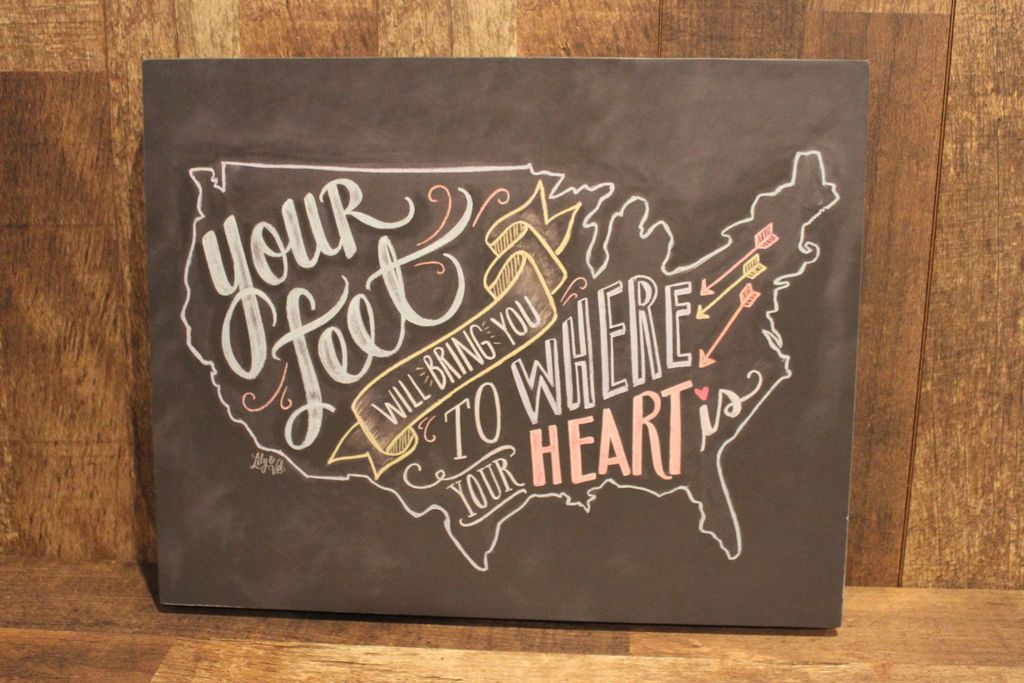 your
feet
WILL BRING YOU
TO WHERE
YOUR HEART is
Lily & Val